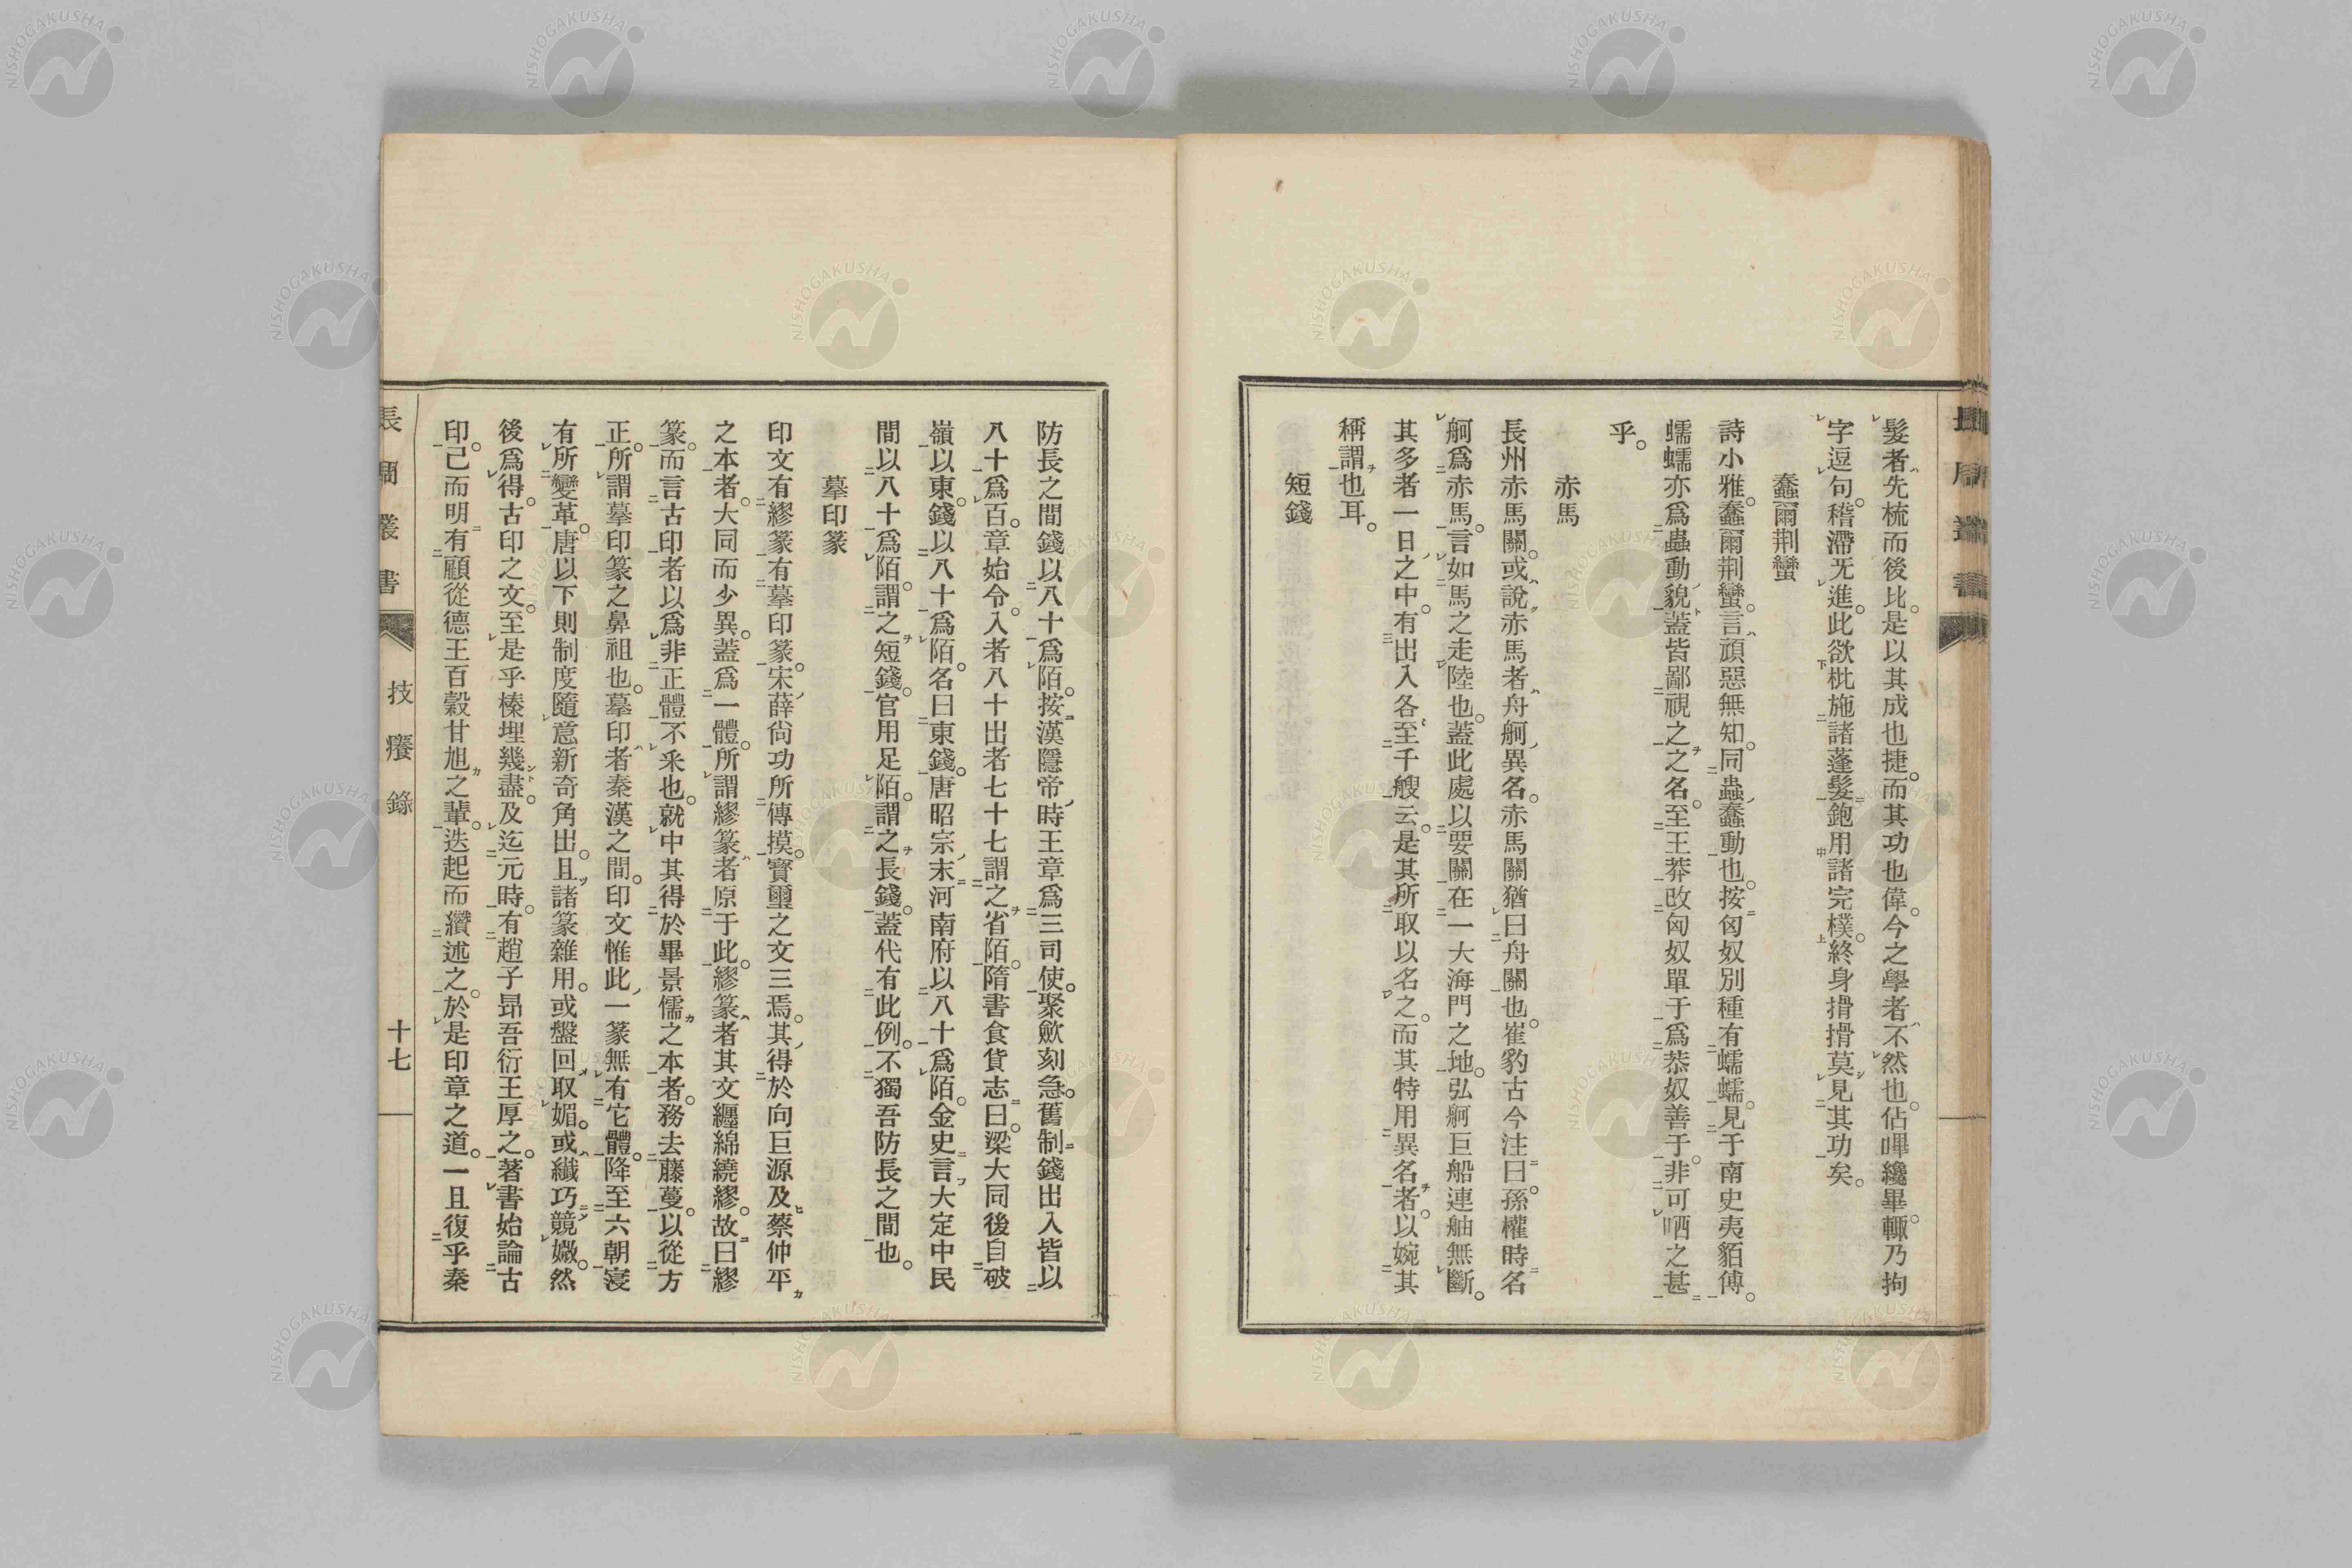 髮者先梳而後比。是以其成也捷。而其功也偉。今之學者不然也。佔嗶纔畢。輙乃拘
字逗句。稽滯旡進。此欲枇施諸蓬髮。鉋用諸完樸。終身搰搰莫見其功矣。
蠢爾荆蠻
詩小雅。蠢爾荆蠻。言頑惡無知。同蟲蠢動也。按匈奴別種有蠕蠕。見于南史夷貊傳。
蠕蠕亦爲蟲動貌。蓋皆鄙視之之名。至王莽改匈奴單于爲恭奴善于。非可哂之甚
乎。
赤馬
長州赤馬關。或說赤馬者舟舸異名。赤馬關猶曰舟關也。崔豹古今注曰。孫權時名
舸爲赤馬。言如馬之走陸也。蓋此處以要關在一大海門之地。弘舸巨船連舳無斷。
其多者一日之中。有出入各至千艘云。是其所取以名之。而其特用異名者。以婉其
稱謂也耳。
短錢
防長之間錢以八十爲陌。按漢隱帝時王章爲三司使。聚歛刻急。舊制錢出入皆以
八十爲百。章始令入者八十出者七十七謂之省陌。隋書食貨志曰。梁大同後自破
嶺以東。錢以八十爲陌。名曰東錢。唐昭宗末河南府以八十爲陌。金史言大定中民
間以八十爲陌。謂之短錢。官用足陌。謂之長錢。蓋代有此例。不獨吾防長之間也。
摹印篆
印文有繆篆。有摹印篆。宋薛尙功所傳摸。寳璽之文三焉。其得於向巨源及蔡仲平
之本者。大同而少異。蓋爲一體。所謂繆篆者原于此。繆篆者其文纒綿繞繆。故曰繆
篆。而言古印者以爲非正體不采也。就中其得於畢景儒之本者。務去藤蔓。以從方
正。所謂摹印篆之鼻祖也。摹印者秦漢之間。印文惟此一篆無有它體。降至六朝寖
有所變革。唐以下則制度隨意新奇角出。且諸篆雜用。或盤回取媚。或纖巧競媺。然
後爲得。古印之文。至是乎榛埋幾盡。及迄元時。有趙子昂吾衍王厚之。著書始論古
印。己而明有顧從德王百穀甘旭之輩。迭起而纘述之。於是印章之道。一且復乎秦
長周叢書
技癢錄
十七